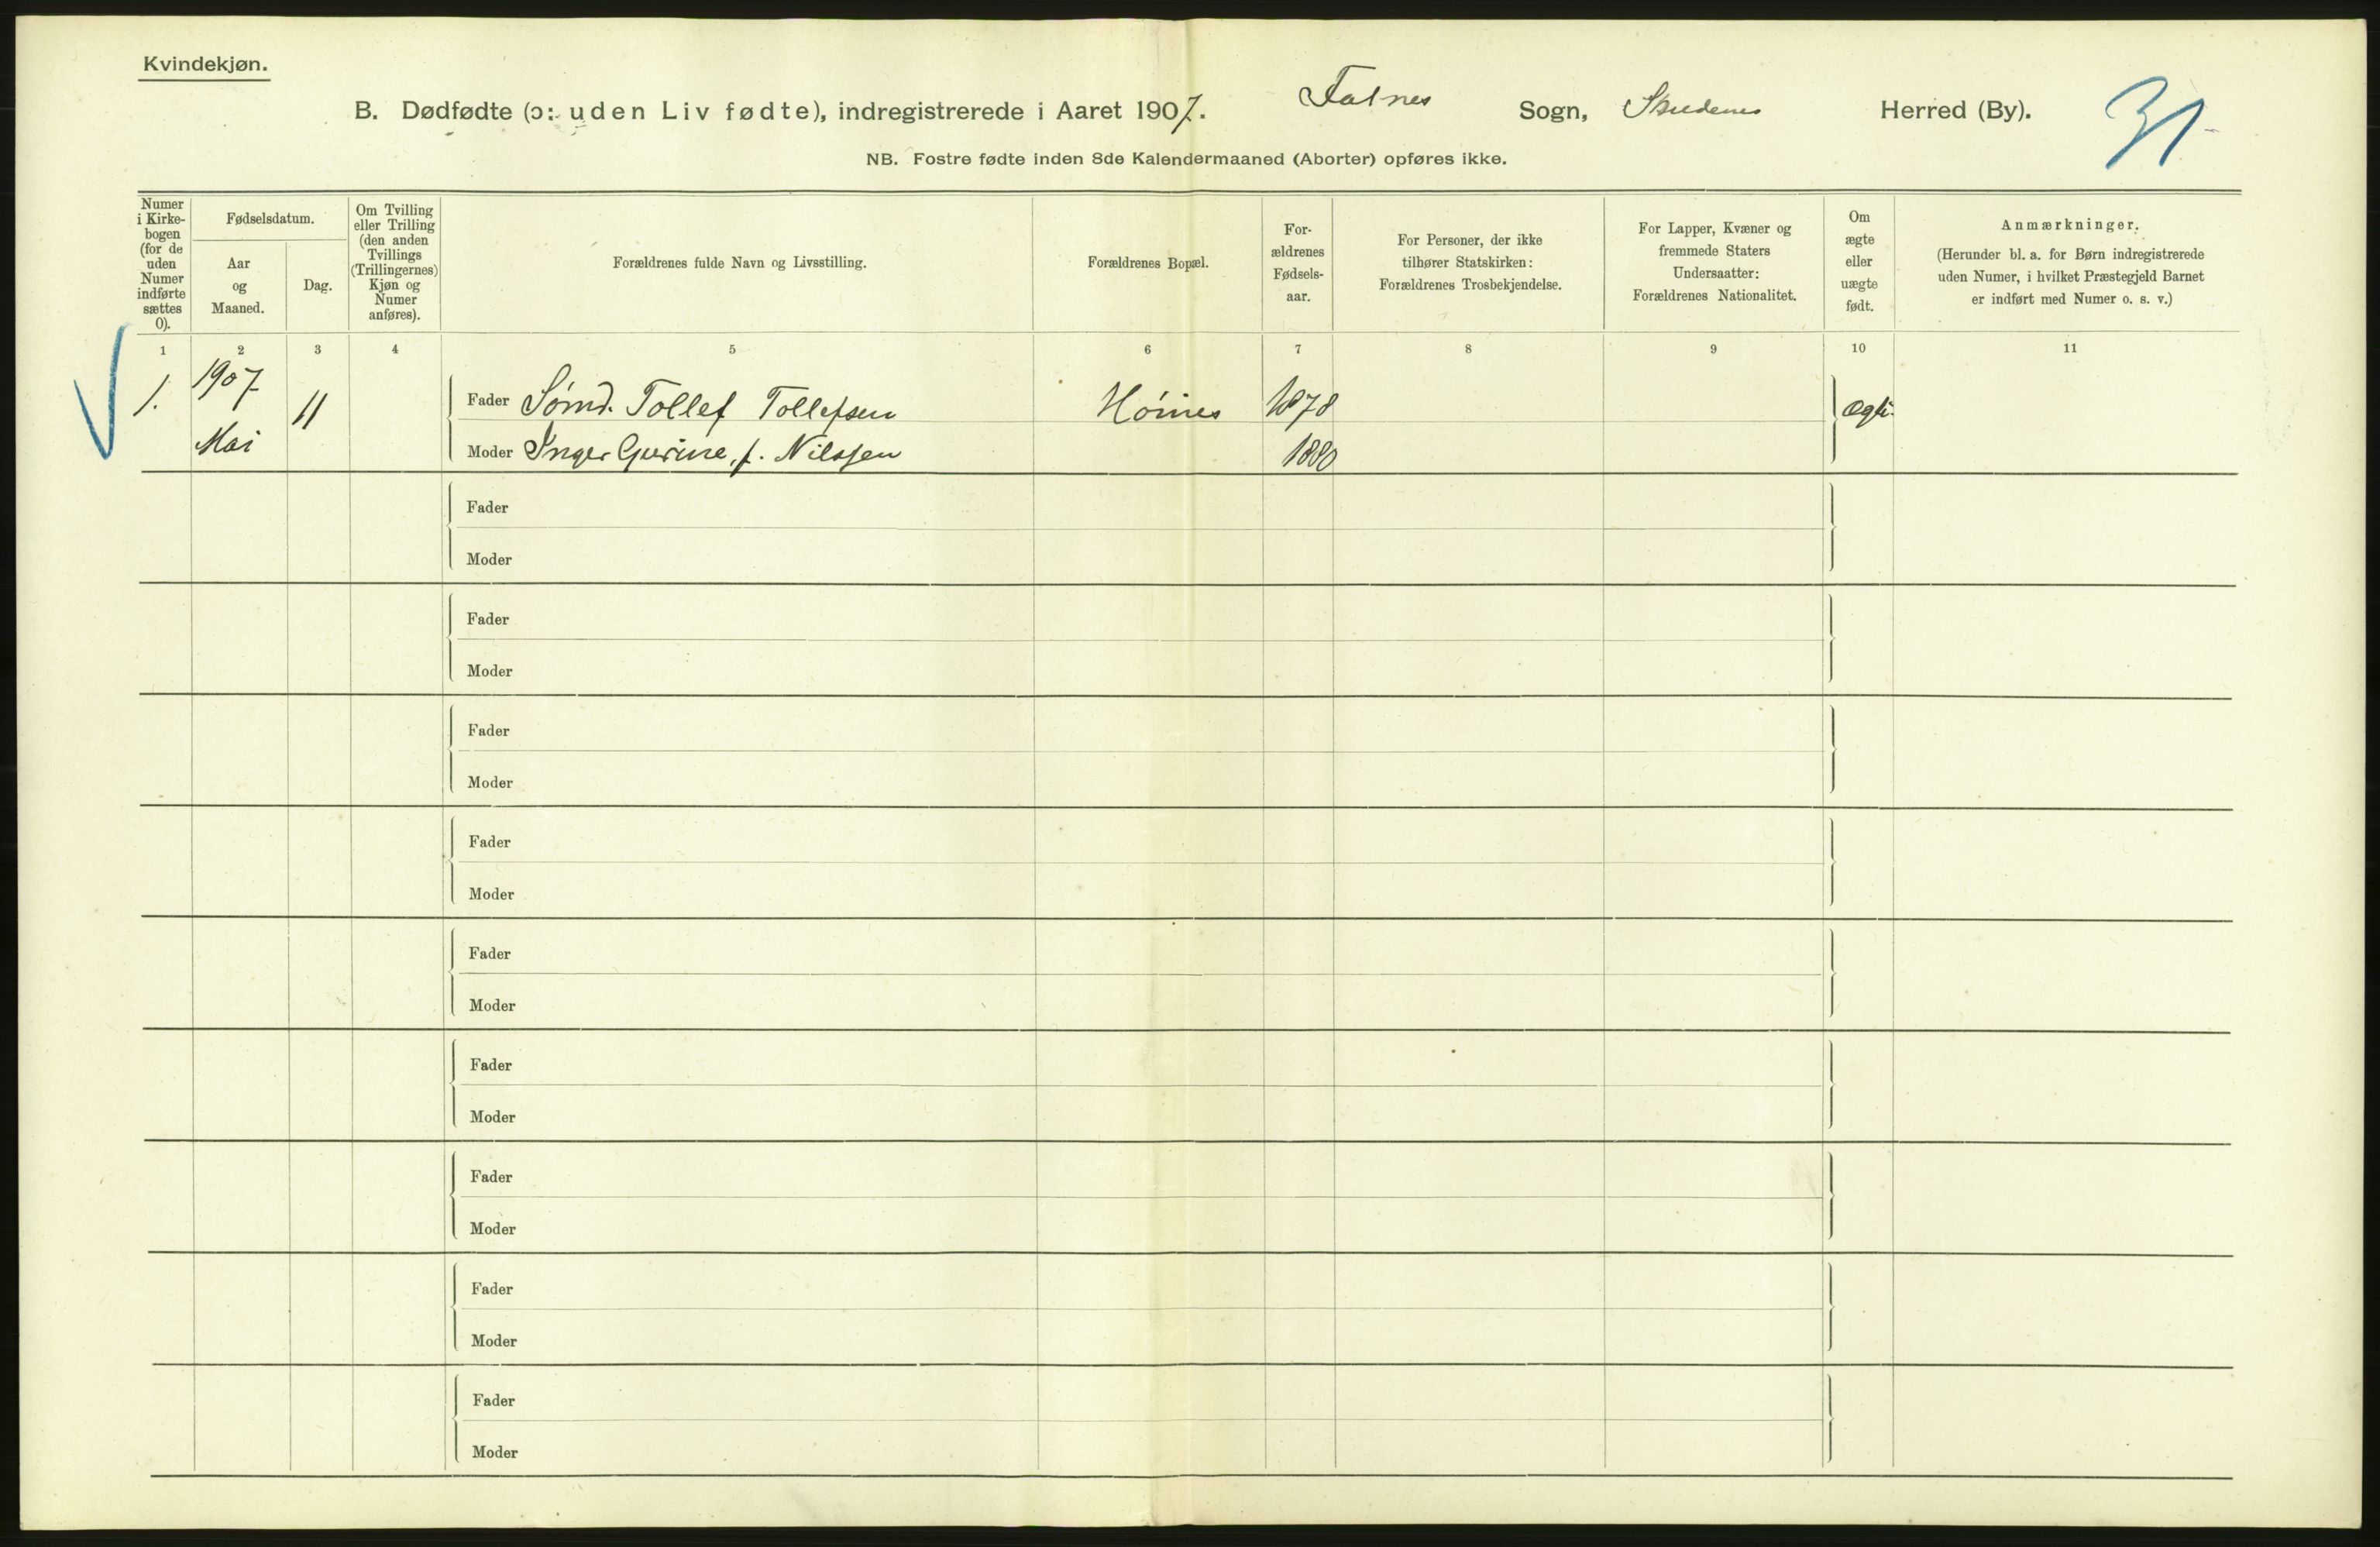 Kvindekjøn.
B. Dødfødte (ɔ: uden Liv fødte), indregistrerede i Aaret 1907. Falnes Sogn, Skudenes Herred (By). 31
NB. Fostre fødte inden 8de Kalendermaaned (Aborter) opføres ikke.
Numer i Kirke-bogen (for de uden Numer indførte sættes 0).
Fødselsdatum.
Aar og Maaned.
Dag.
Om Tvilling eller Trilling (den anden Tvillings (Trillingernes) Kjøn og Numer anføres).
Forældrenes fulde Navn og Livsstilling.
Forældrenes Bopæl.
For-ældrenes Fødsels-aar.
For Personer, der ikke tilhører Statskirken: Forældrenes Trosbekjendelse.
For Lapper, Kvæner og fremmede Staters Undersaatter: Forældrenes Nationalitet.
Om ægte eller uægte født.
Anmærkninger.
(Herunder bl. a. for Børn indregistrerede uden Numer, i hvilket Præstegjeld Barnet er indført med Numer o. s. v.)
1 2 3 4 5 6 7 8 9 10 11
1. 1907 Mai 11
Fader Sømd. Tollef Tollefsen Høines 1878 Ægte
Moder Inger Gurine, f. Nilssen 1880
Fader
Moder
Fader
Moder
Fader
Moder
Fader
Moder
Fader
Moder
Fader
Moder
Fader
Moder
Fader
Moder
Fader
Moder